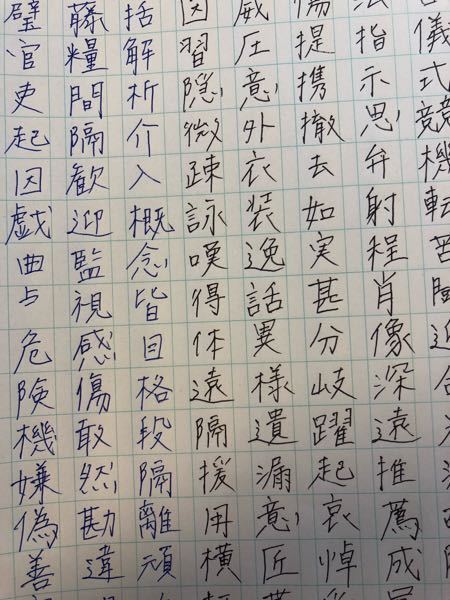 儀式競機転苦
指示思弁射程肖像深遠推薦成
提携撤去如実甚分岐躍起哀悼
威圧意外衣装逸話異様遺漏意匠
因習隠微疎詠嘆得体遠隔援用横
括解析介入概念皆目格段隔離頑
藤糧間隔歓迎監視感傷敢然勘違
璧官吏起因戯曲与危険機嫌偽善